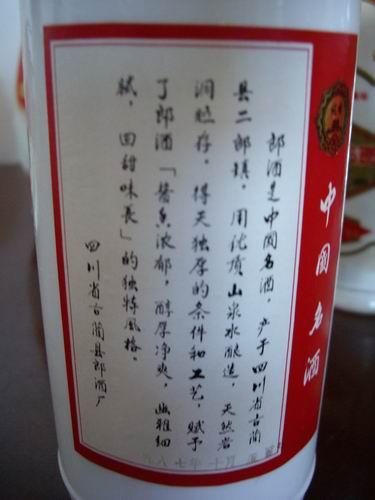 中國名酒
郎酒是中國名酒，产于四川省古蔺
县二郎镇，用优质山泉水酿造，天然岩
洞贮存，得天独厚的条件和工艺，赋予
了郎酒「醬香浓郁，醇厚净爽，幽雅细
腻，回甜味長」的独特風格。
四川省古蔺县郎酒厂
八七年十月